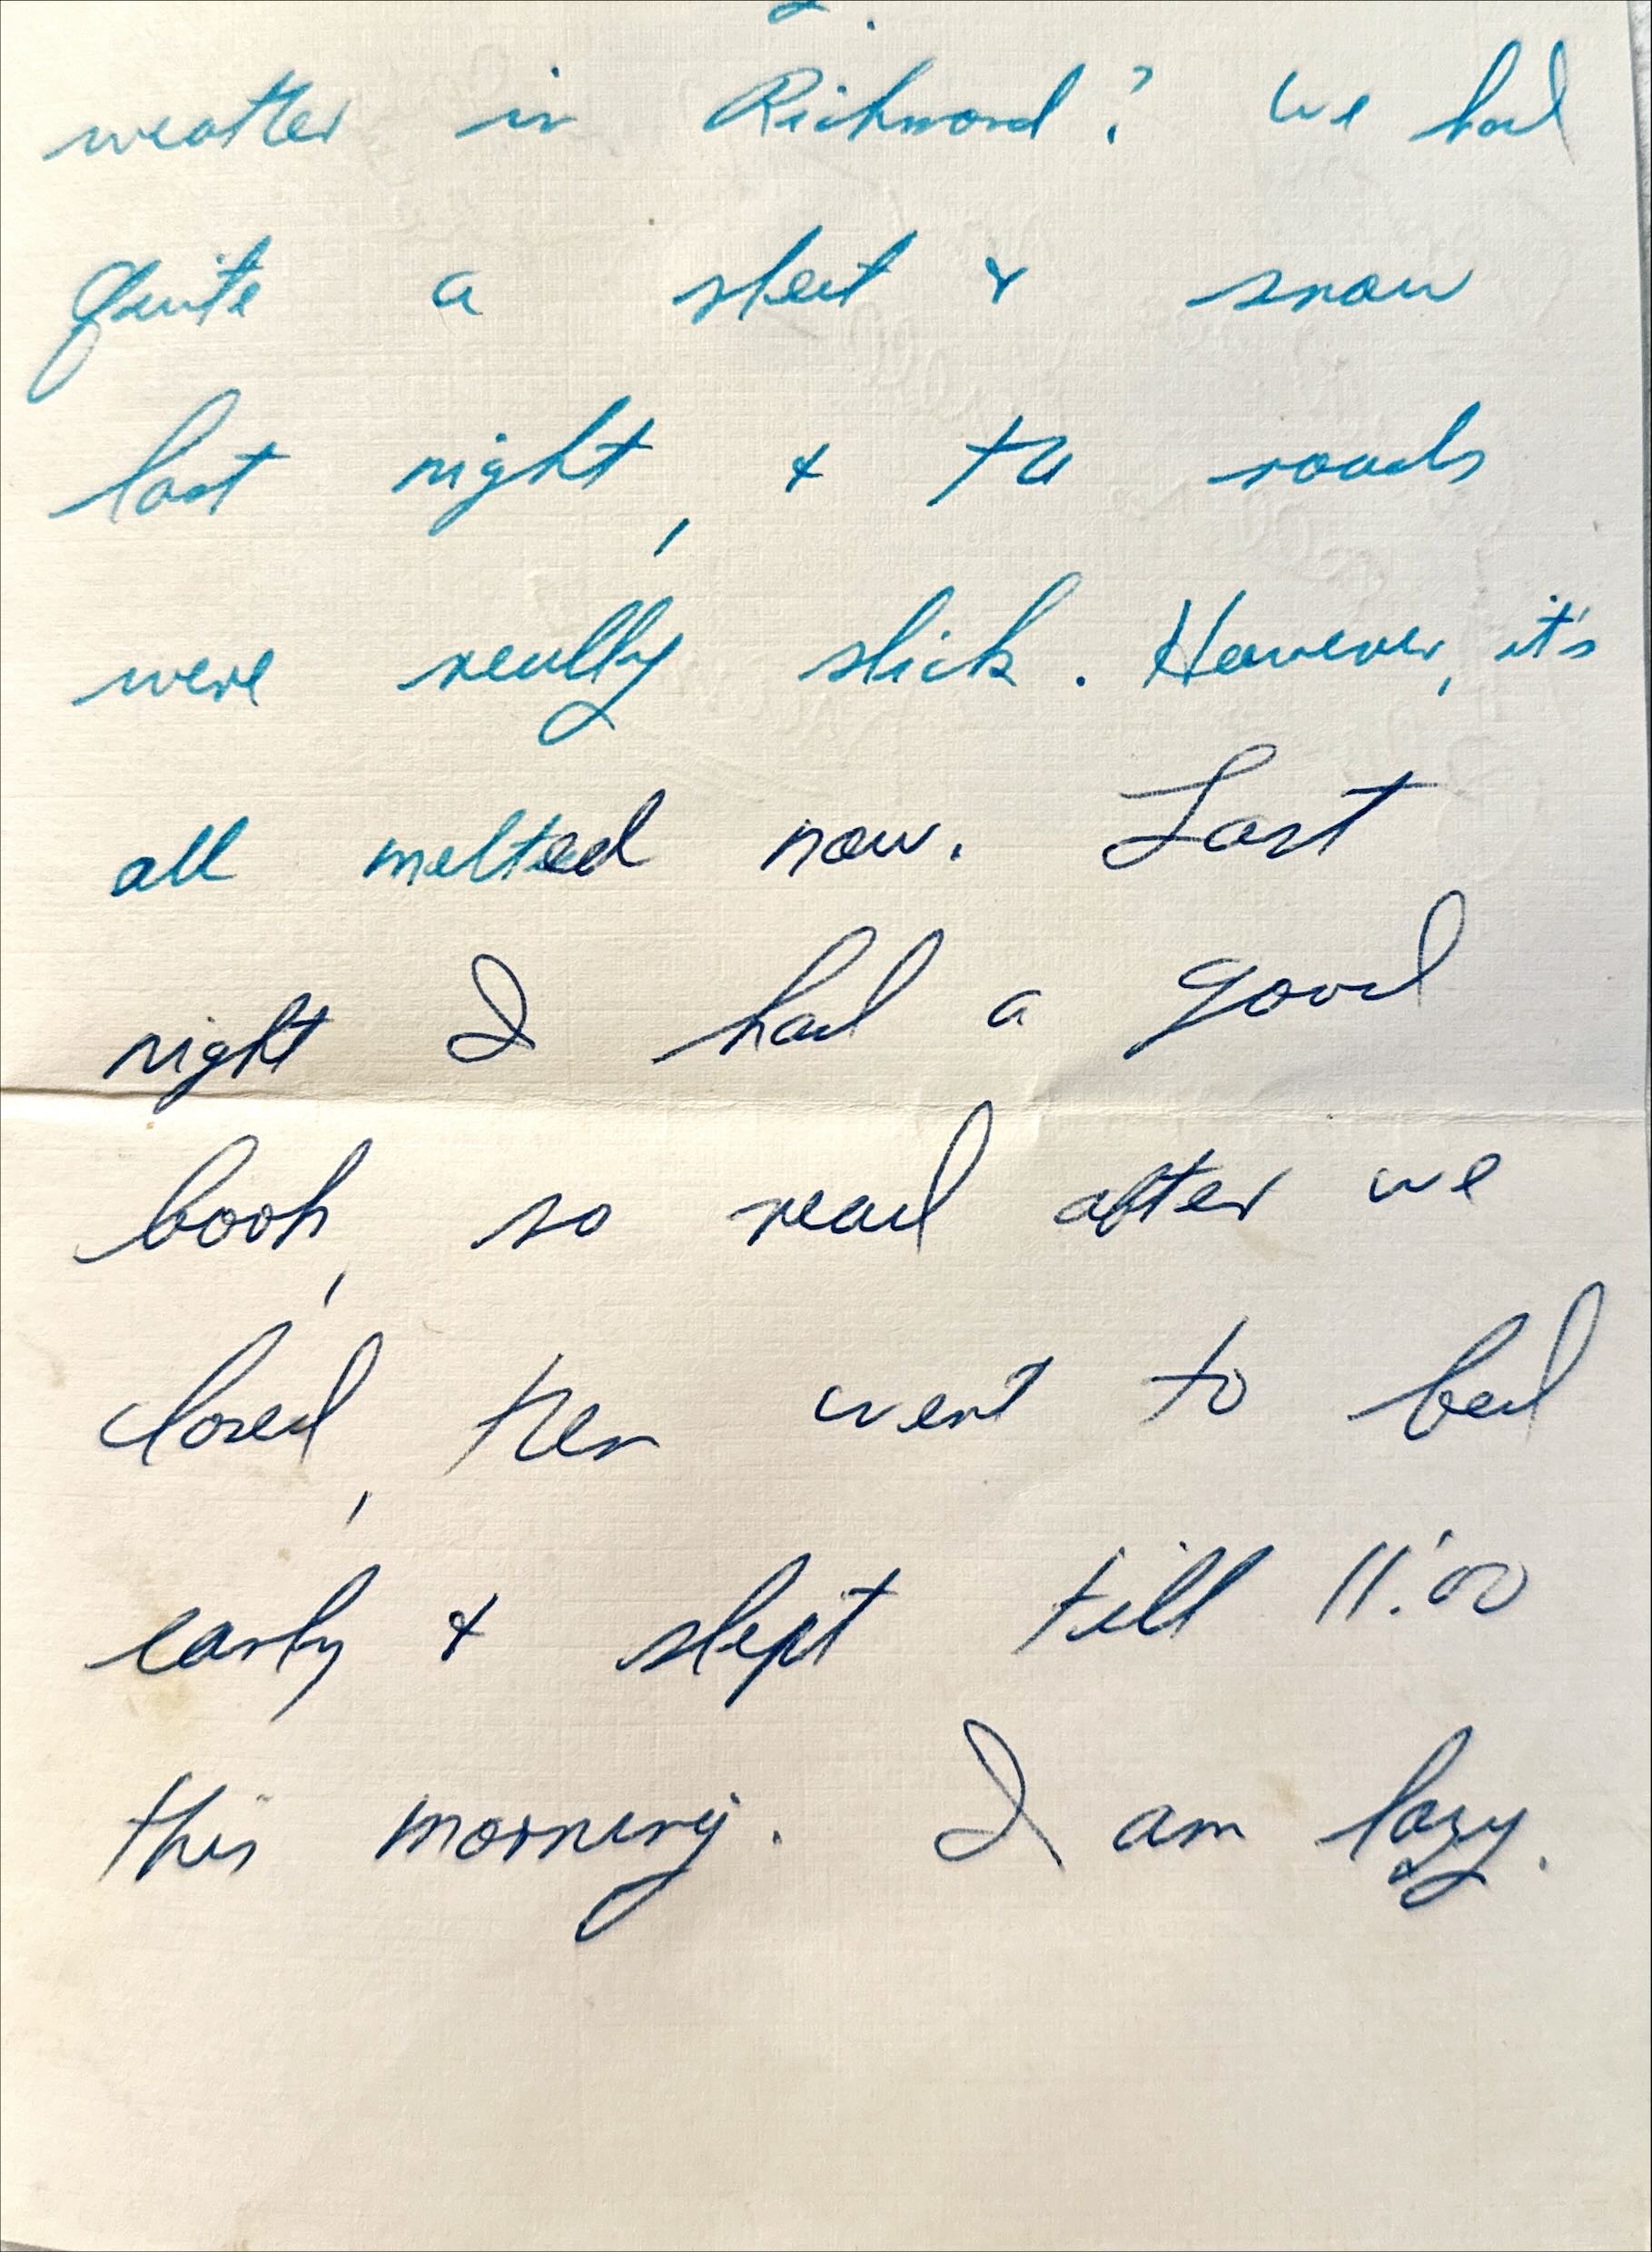 weather in Richmond? We had
quite a sleet & snow
last night, & the roads
were really slick. However, it's
all melted now. Last
night I had a good
book, so read after we
closed, then went to bed
early & slept till 11:00
this morning. I am lazy.